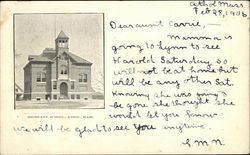 Athol Mass.
Feb 28, 1906
Dear aunt Carrie,—
Mamma is
going to Lynn to see
Harold Saturday so
will not be at home but
will be any other Sat.
Knowing she was going to
be gone she thought she
would let you know
we will be glad to see you anytime.
HIGH SCHOOL, ATHOL, MASS.